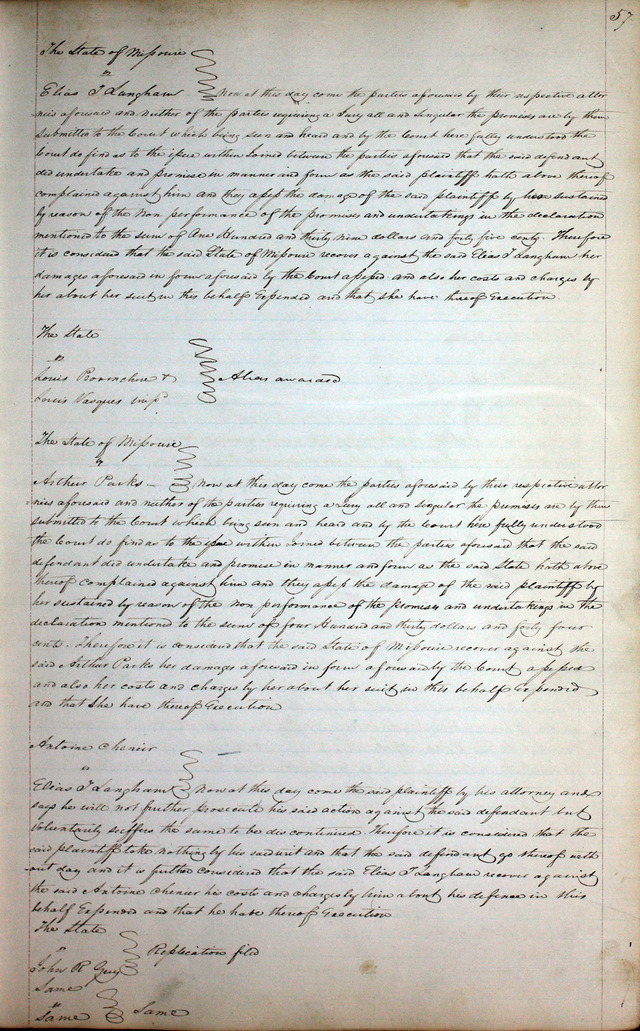 57
The State of Missourie
vs
Elias T Langham Now at this day come the parties aforesaid by their respective attor
nies aforesaid and neither of the parties requiring a Jury all and singular the premises are by them
submitted to the Court which being seen and heard and by the Court here fully understood the
Court do find as to the issue within Joined between the parties aforesaid that the said defendant
did undertake and promise in manner and form as the said plaintiff hath above thereof
complained against him and they assess the damage of the said plaintiff by her sustained
by reason of the Non performance of the promises and undertakings in the declaration
mentioned to the sum of One Hundred and thirty nine dollars and forty five cents. Therefore
it is considered that the said State of Missourie recover against the said Elias T Langham her
damages aforesaid in form aforesaid by the Court assessed and also her costs and charges by
her about her suit in this behalf Expended and that she have thereof Execution.
The State
vs
Louis &
Louis Vasques
Alias awarded
The State of Missourie
vs
Arthur Parks Now at this day come the parties aforesaid by their respective attor
nies aforesaid and neither of the parties requiring a Jury all and singular the premises are by them
submitted to the Court which being seen and heard and by the Court here fully understood
the Court do find as to the issue within Joined between the parties aforesaid that the said
defendant did undertake and promise in manner and form as the said State hath above
thereof complained against him and they assess the damage of the said plaintiff by
her sustained by reason of the Non performance of the promises and undertakings in the
declaration mentioned to the sum of four Hundred and thirty dollars and forty four
cents. Therefore it is considered that the said State of Missourie recover against the
said Arthur Parks her damages aforesaid in form aforesaid by the Court assessed
and also her costs and charges by her about her suit in this behalf Expended
and that she have thereof Execution
Antoine Chenier
vs
Elias T Langham Now at this day come the said plaintiff by his attorney and
says he will not further prosecute his said action against the said defendant but
voluntarily suffers the same to be discontinued. Therefore it is considered that the
said plaintiff take nothing by his said writ and that the said defendant go thereof with
out day and it is further considered that the said Elias T Langham recover against
the said Antoine Chenier his costs and charges by him about his defence in this
behalf Expended and that he have thereof Execution
The State
vs
John R Guy
Replication filed
Same
vs
Same
Same